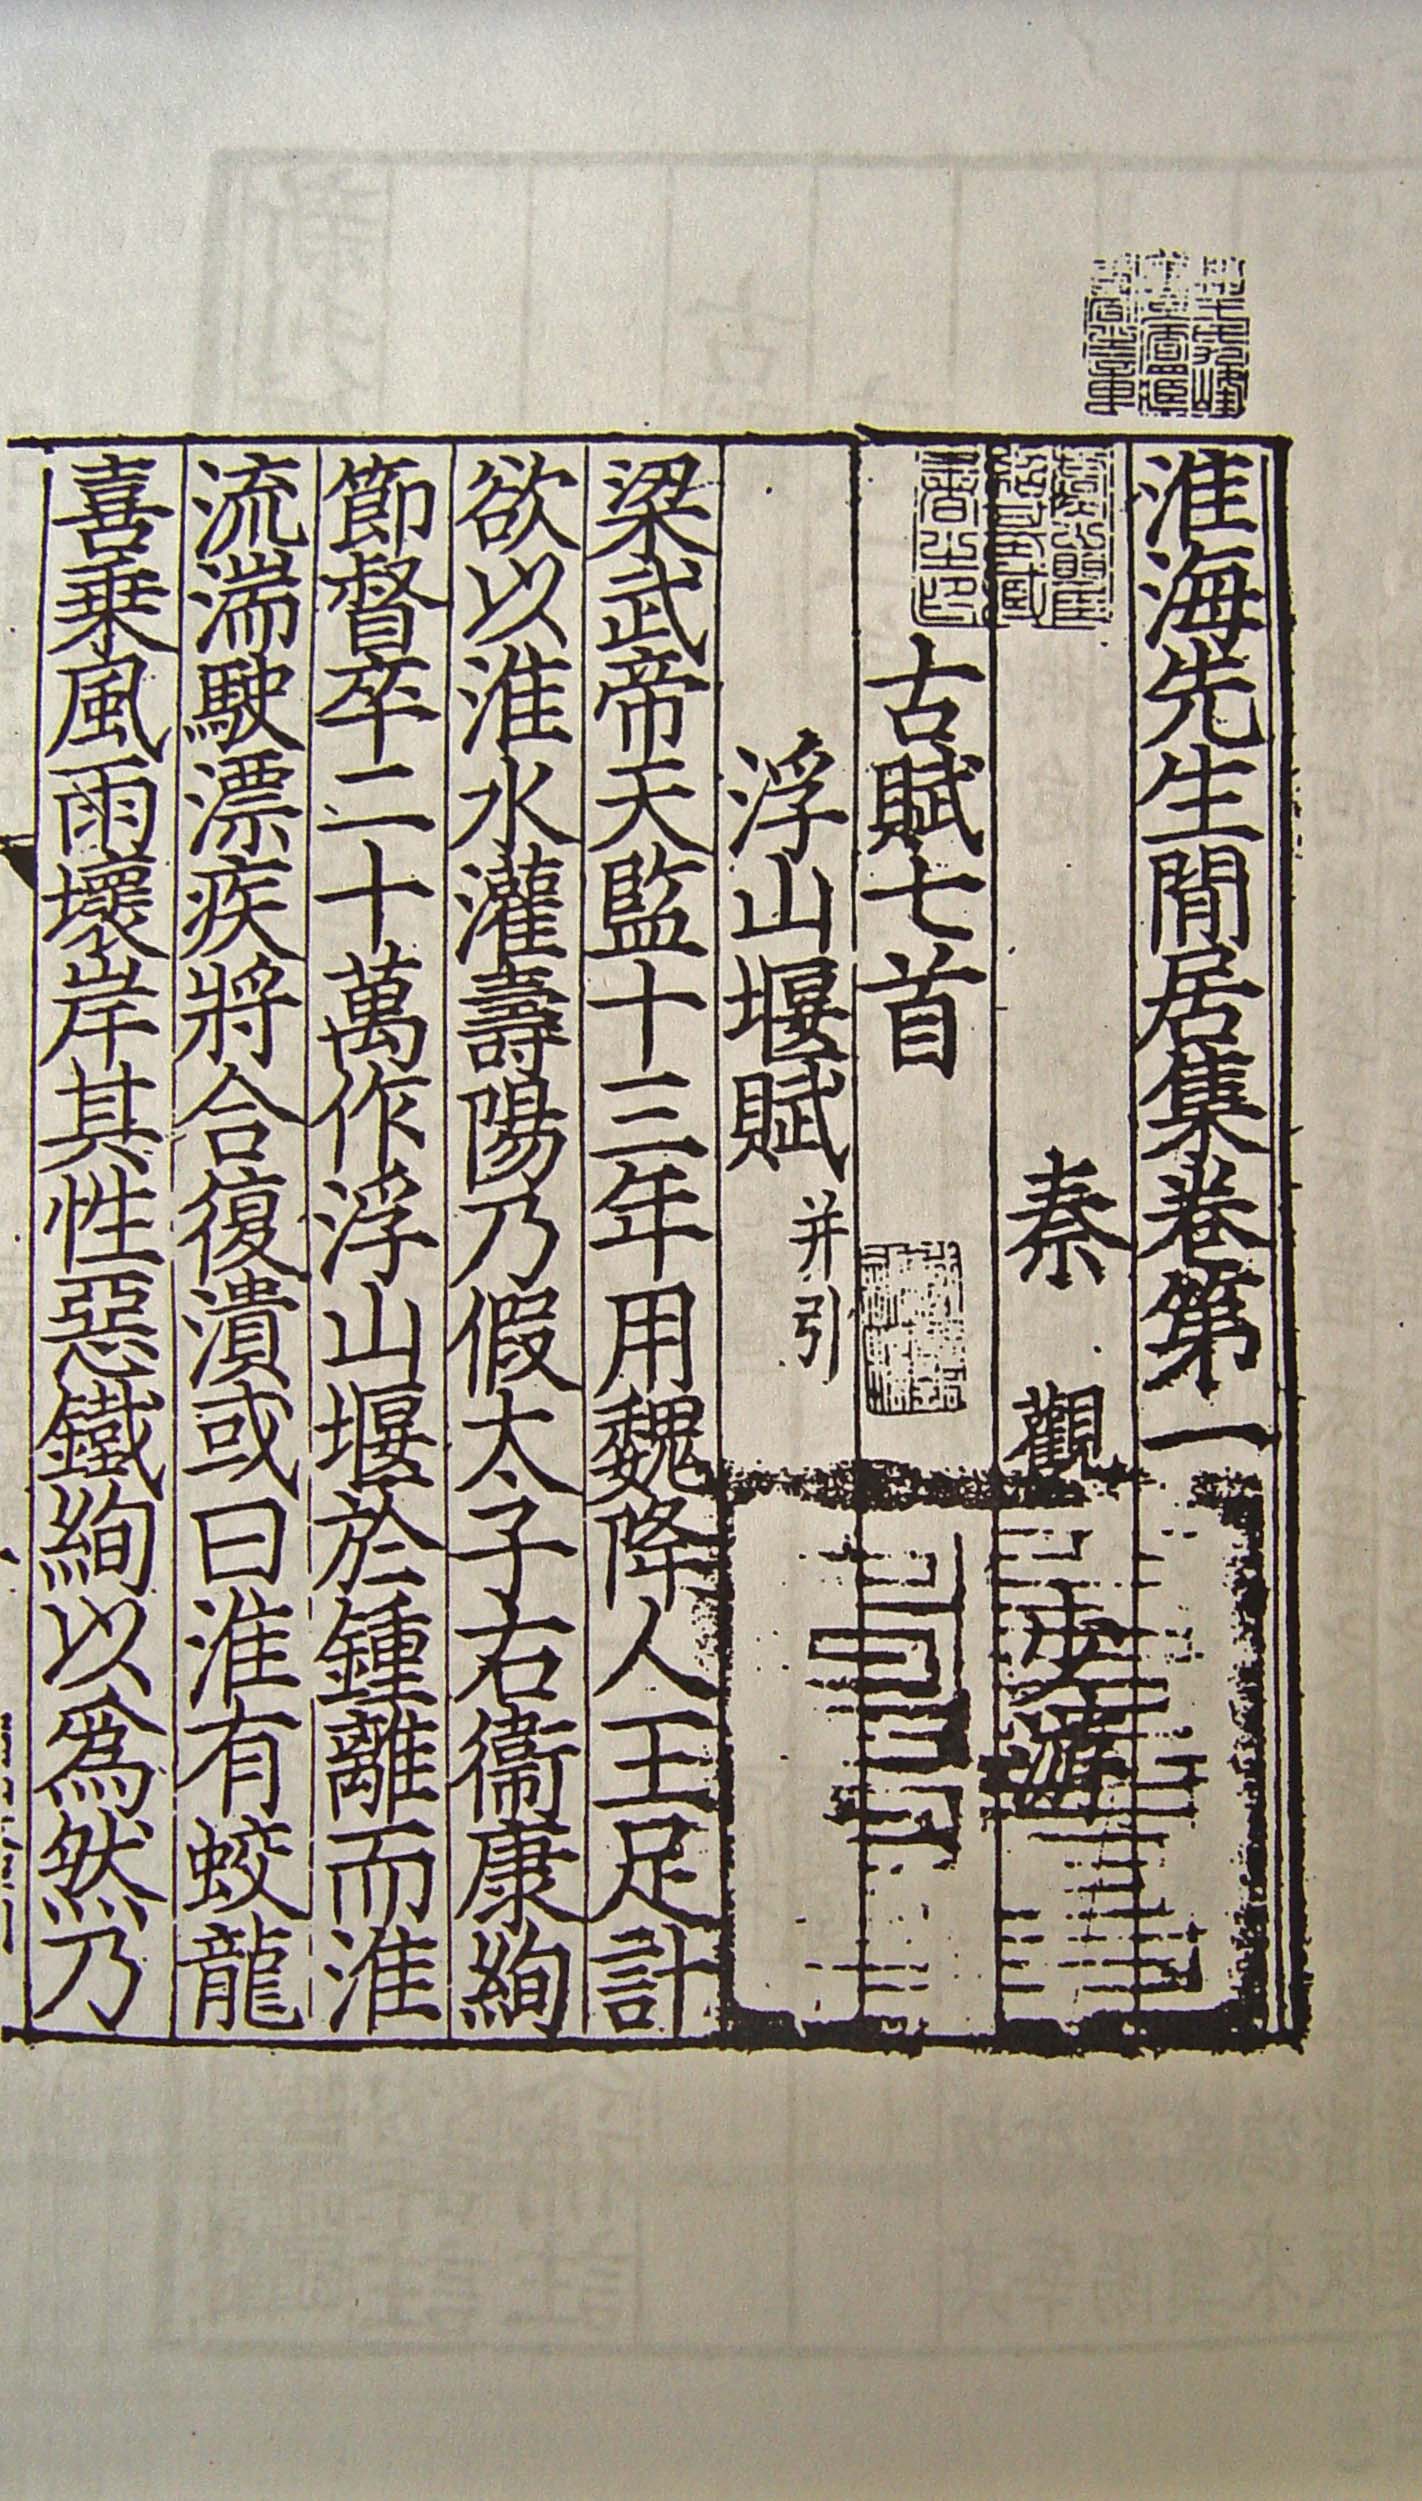 淮海先生閒居集卷第一
秦觀
古賦七首
浮山堰賦并引
梁武帝天監十三年用魏降人王足計
欲以淮水灌壽陽乃假太子右衞康絢
節督卒二十萬作浮山堰於鍾離而淮
流湍駛漂疾將合復潰或曰淮有蛟龍
喜乗風雨壞岸其性惡鐵絢以爲然乃